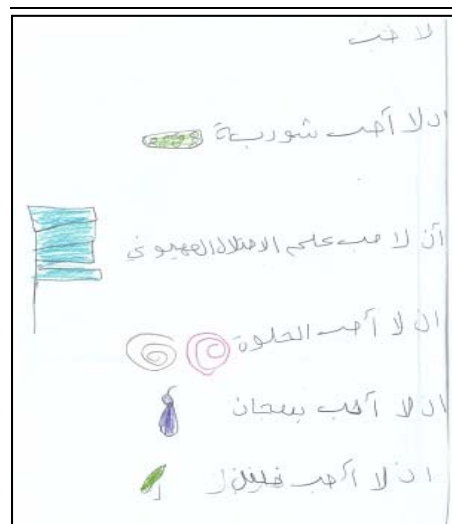 لا حب
ان لا أحب شوربة
أن لا حب علم الاحتلال الصهيوني
ان لا أحب الحلوة
ان لا أحب بتنجان
ان لا أحب فلفل